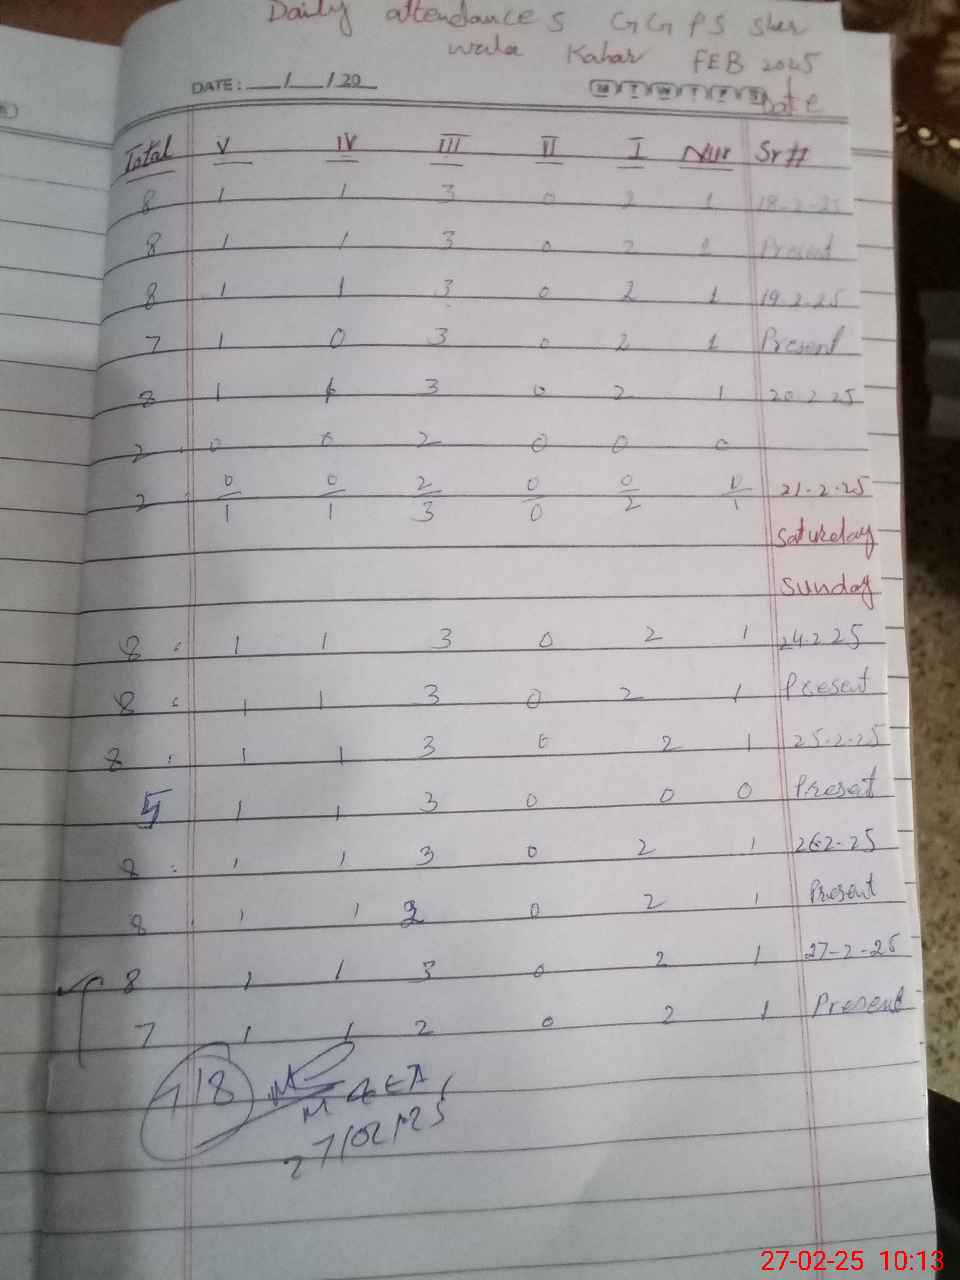 Daily attendance S GGPS Sher
wala Kahar FEB 2025
DATE: __/__/20__
Date
Total V IV III II I Nur Sr #
8 1 1 3 0 2 1 18-2-25
8 1 1 3 0 2 1 Present
8 1 1 3 0 2 1 19-2-25
7 1 0 3 0 2 1 Present
8 1 1 3 0 2 1 20-2-25
2 0 0 2 0 0 0
2 0/1 0/1 2/3 0/0 0/2 0/1 21-2-25
Saturday
Sunday
8 1 1 3 0 2 1 24-2-25
8 1 1 3 0 2 1 Present
8 1 1 3 0 2 1 25-2-25
5 1 1 3 0 0 0 Present
8 1 1 3 0 2 1 26-2-25
8 1 1 3 0 2 1 Present
8 1 1 3 0 2 1 27-2-25
7 1 1 2 0 2 1 Present
7/8
MEA
27/02/25
27-02-25 10:13